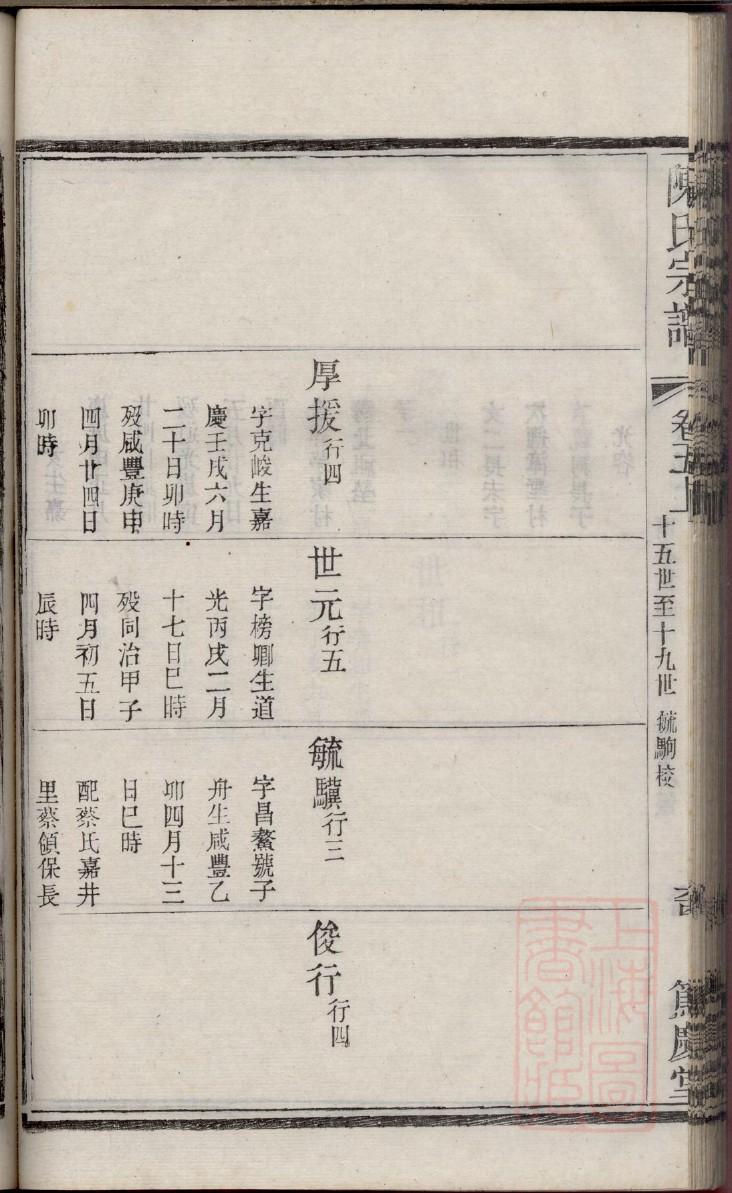 陳氏宗譜
卷五上
十五世至十九世 毓駒校
篤慶堂
厚援行四
字克峻生嘉
慶壬戌六月
二十日卯時
歿咸豐庚申
四月廿四日
卯時
世元行五
字榜卿生道
光丙戌二月
十七日巳時
歿同治甲子
四月初五日
辰時
毓驥行三
字昌鰲號子
舟生咸豐乙
卯四月十三
日巳時
配蔡氏嘉井
里蔡領保長
俊行行四
上海圖書館藏